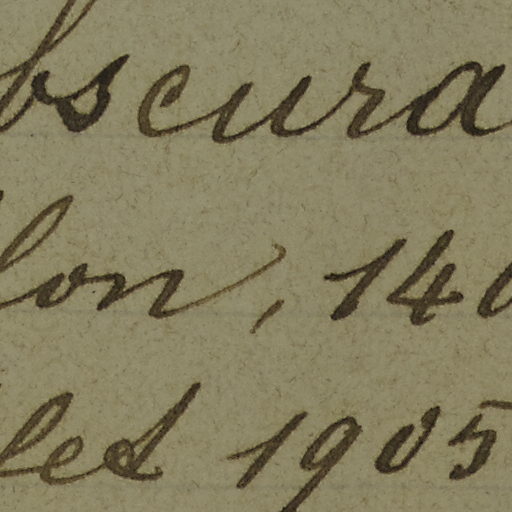 bscura
lon, 140
let 1905